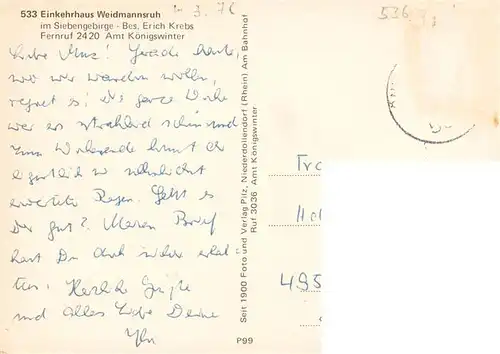 533 Einkehrhaus Weidmannsruh
im Siebengebirge - Bes. Erich Krebs
Fernruf 2420 Amt Königswinter
3. 76
536
Liebe Mus! Gerade heute,
wo wir wandern wollen,
regnet es; die ganze Woche
war es strahlend schön und
zum Wochenende kommt der
eigentlich so sehnlichst
erwartete Regen. Geht es
Dir gut? Meinen Brief
hast Du doch sicher erhal-
ten. Herzliche Grüße
und alles Liebe Deine
Seit 1900 Foto und Verlag Pilz, Niederdollendorf (Rhein) Am Bahnhof
Ruf 3036 Amt Königswinter
495
P99